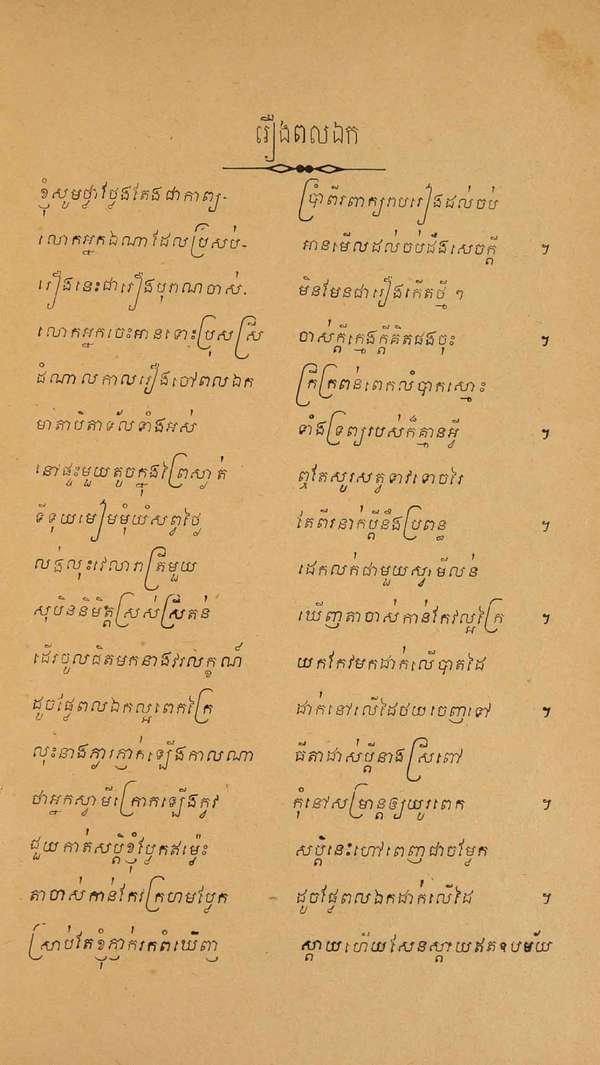 រឿងពលឯក
ខ្ញុំសូមថ្វាថ្លែងតែងជាកាព្យ- ប្រាំពីរពាក្យរាបរៀងដល់ចប់
លោកអ្នកឯណាដែលប្រសប់- អានមើលដល់ចប់ដឹងសេចក្ដី ។
រឿងនេះជារឿងបុរាណចាស់. មិនមែនជារឿងកើតថ្មី ៗ
លោកអ្នកចេះអានទោះប្រុសស្រី ចាស់ក្ដីក្មេងក្ដីគិតផងចុះ ។
ដំណាលកាលរឿងចៅពលឯក ក្រីក្រពន់ពេកលំបាកស្មោះ
មាតាបិតាទ័លទាំងអស់ ទាំងទ្រព្យរបស់ក៏គ្មានអ្វី ។
នៅផ្ទះមួយតូចក្នុងព្រៃស្ងាត់ ឮតែសូរសត្វទាវទោចរៃ
ទីទុយមៀមមុំយំសព្វថ្ងៃ តែពីរនាក់ប្ដីនឹងប្រពន្ធ ។
លង់លុះវេលារាត្រីមួយ ដេកលក់ជាមួយស្វាមីលន់
សុបិននិមិត្តស្រស់ស្រីតន់ ឃើញតាចាស់កាន់កែវល្អក្រៃ ។
ដើរចូលជិតមកនាងវរលក្ខណ៍ យកកែវមកដាក់លើបាតដៃ
ដូចផ្ទៃពលឯកល្អពេកក្រៃ ដាក់នៅលើដៃថយចេញទៅ ។
លុះនាងភ្ញារភ្ញាក់ឡើងកាលណា ធីតាដាស់ប្ដីនាងស្រីពៅ
ថាអ្នកស្វាមីក្រោកឡើងកូវ កុំនៅសម្រាន្តឲ្យយូរពេក ។
ជួយកាត់សប្ដិខ្ញុំប្លែកឥម្ល៉េះ សប្ដិនេះហៅពេញជាចម្លែក
តាចាស់កាន់កែវក្រហមប្លែក ដូចផ្ទៃពលឯកដាក់លើដៃ ។
ស្រាប់តែខ្ញុំភ្ញាក់រកពំឃើញ ស្ដាយហើយសែនស្ដាយឥតឧបមយ័